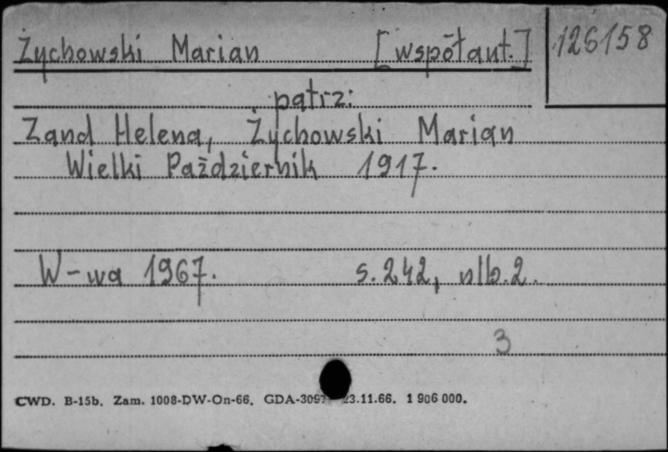 Żychowski Marian [współaut.] 126158
patrz:
Zand Helena, Żychowski Marian
Wielki Październik 1917.
W-wa 1967. s. 242, nlb. 2.
3
CWD. B-15b. Zam. 1008-DW-On-66. GDA-309 23.11.66. 1 906 000.